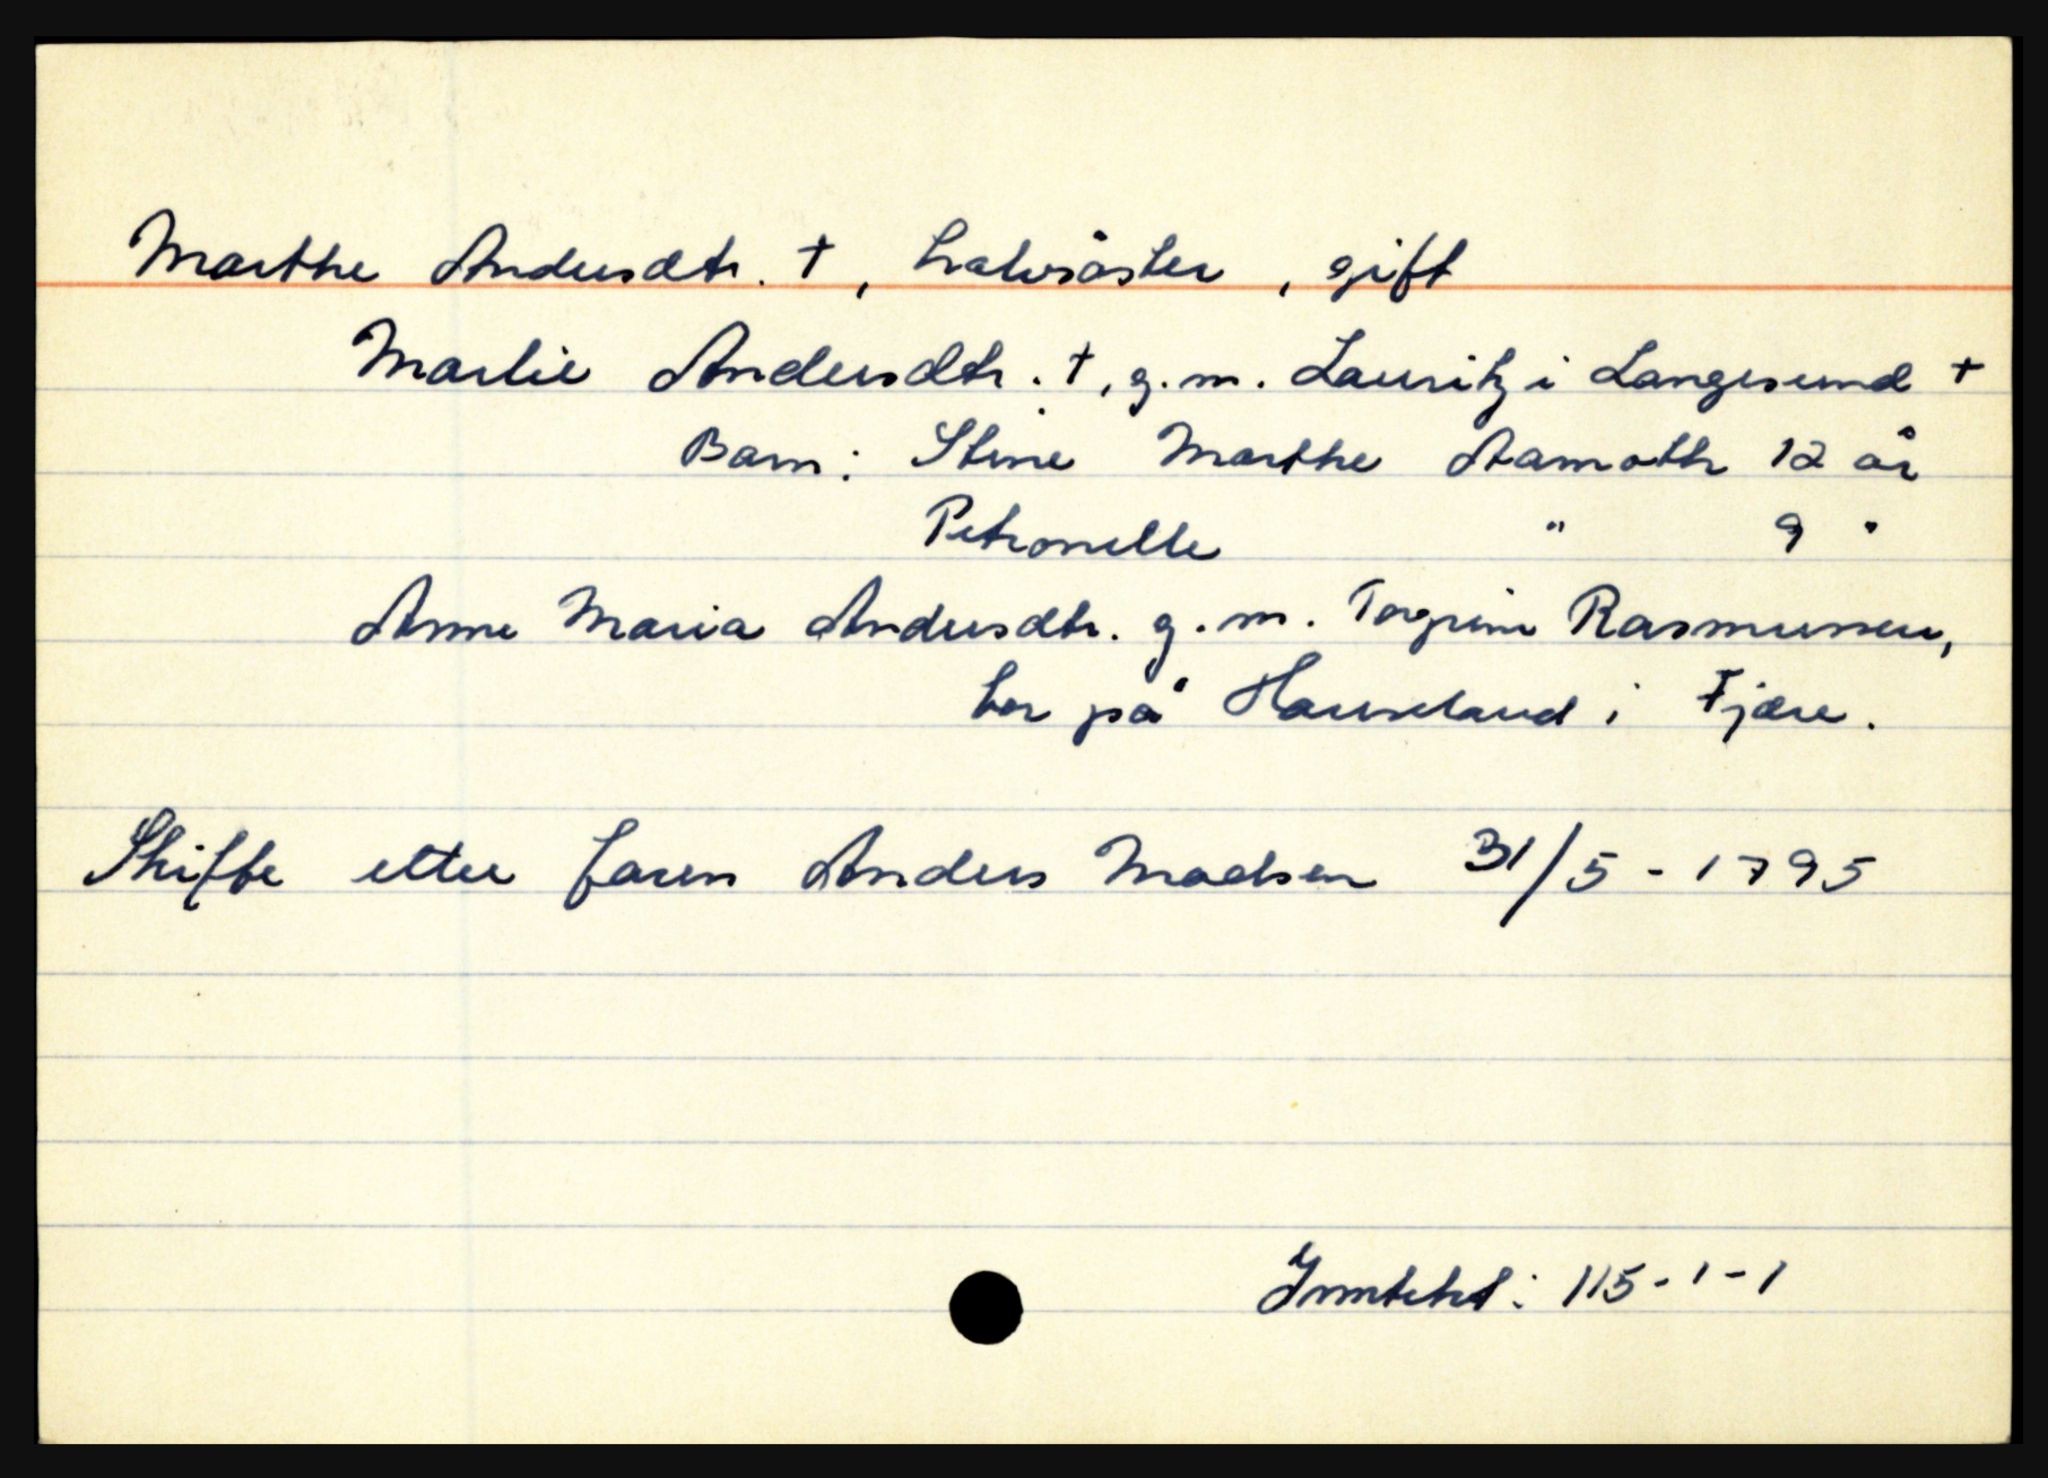 Marthe Andersdtr. †, halvsøster, gift
Marlie Andersdtr. †, g.m. Lauritz i Langesund †
Barn: Stine Marthe Aamoth 12 år
Petronelle " 9 "
Anne Maria Andersdtr. g.m. Torgrim Rasmussen,
bor på Hauseland i Fjære.
Skifte etter faren Anders Madsen 31/5-1795
Inntekt: 115-1-1